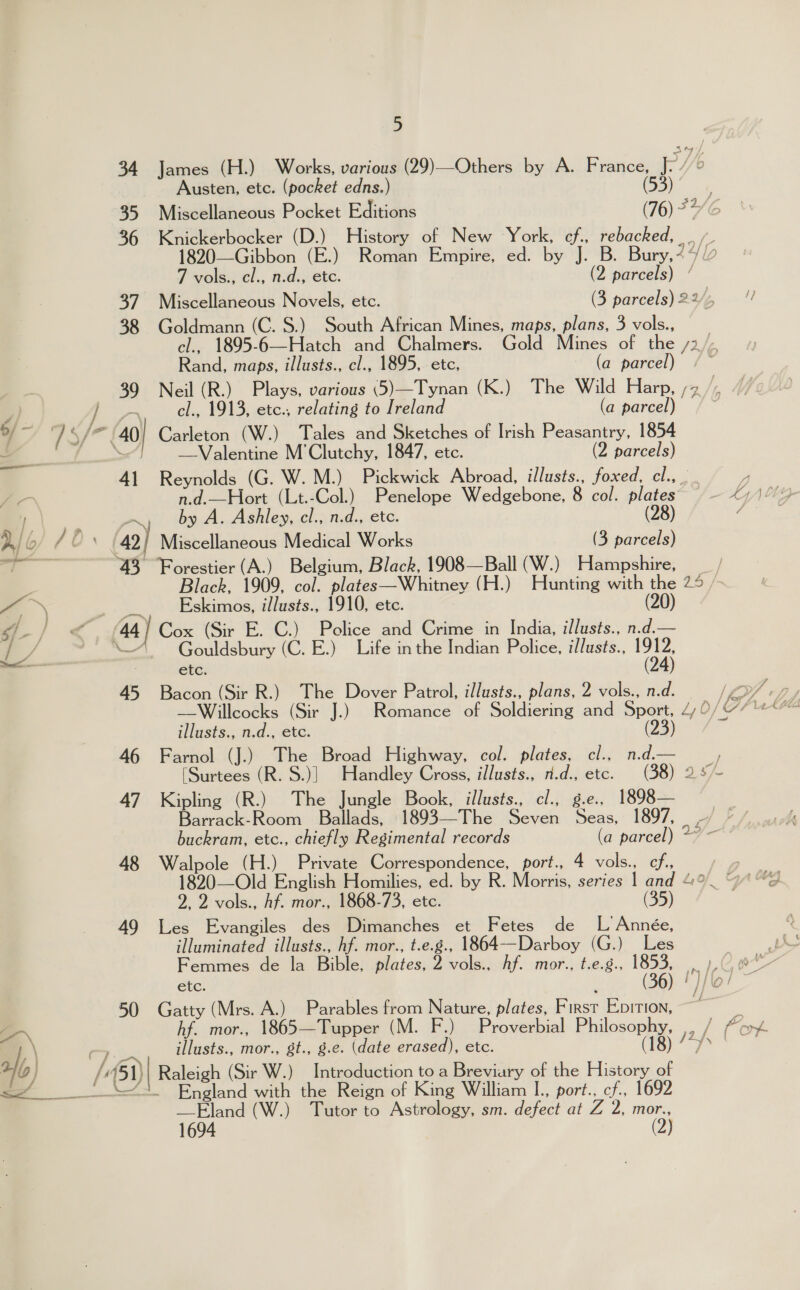 5
34 James (H.) Works, various (29)—Others by A. France, J.
Austen, etc. (pocket edns.) (53)
35 Miscellaneous Pocket Editions (76)
36 Knickerbocker (D.) History of New York, cf., rebacked,
1820—Gibbon (E.) Roman Empire, ed. by J. B. Bury,
7 vols., cl., n.d., etc. (2 parcels)
37 Miscellaneous Novels, etc. (3 parcels)
38 Goldmann (C. S.) South African Mines, maps, plans, 3 vols.,
cl., 1895-6—Hatch and Chalmers. Gold Mines of the
Rand, maps, illusts., cl., 1895, etc, (a parcel)
39 Neil (R.) Plays, various (5)—Tynan (K.) The Wild Harp,
cl., 1913, etc., relating to Ireland (a parcel)
40 Carleton (W.) Tales and Sketches of Irish Peasantry, 1854
—Valentine M'Clutchy, 1847, etc. (2 parcels)
41 Reynolds (G. W. M.) Pickwick Abroad, illusts., foxed, cl.,
n.d.—Hort (Lt.-Col.) Penelope Wedgebone, 8 col. plates
by A. Ashley, cl., n.d., etc. (28)
42 Miscellaneous Medical Works (3 parcels)
43 Forestier (A.) Belgium, Black, 1908—Ball (W.) Hampshire,
Black, 1909, col. plates—Whitney (H.) Hunting with the
Eskimos, illusts., 1910, etc. (20)
44 Cox (Sir E. C.) Police and Crime in India, illusts., n.d.—
Gouldsbury (C. E.) Life in the Indian Police, illusts., 1912,
etc. (24)
45 Bacon (Sir R.) The Dover Patrol, illusts., plans, 2 vols., n.d.
—Willcocks (Sir J.) Romance of Soldiering and Sport,
illusts., n.d., etc. (23)
46 Farnol (J.) The Broad Highway, col. plates, cl., n.d.—
[Surtees (R. S.)] Handley Cross, illusts., n.d., etc. (38)
47 Kipling (R.) The Jungle Book, illusts., cl., g.e., 1898—
Barrack-Room Ballads, 1893—The Seven Seas, 1897,
buckram, etc., chiefly Regimental records (a parcel)
48 Walpole (H.) Private Correspondence, port., 4 vols., cf.,
1820—Old English Homilies, ed. by R. Morris, series 1 and
2, 2 vols., hf. mor., 1868-73, etc. (35)
49 Les Evangiles des Dimanches et Fetes de L'Année,
illuminated illusts., hf. mor., t.e.g., 1864—Darboy (G.) Les
Femmes de la Bible, plates, 2 vols., hf. mor., t.e.g., 1853,
etc. (36)
50 Gatty (Mrs. A.) Parables from Nature, plates, FIRST EDITION,
hf. mor., 1865—Tupper (M. F.) Proverbial Philosophy,
illusts., mor., gt., g.e. (date erased), etc. (18)
51 Raleigh (Sir W.) Introduction to a Breviary of the History of
England with the Reign of King William I., port., cf., 1692
—Eland (W.) Tutor to Astrology, sm. defect at Z 2, mor.,
1694 (2)